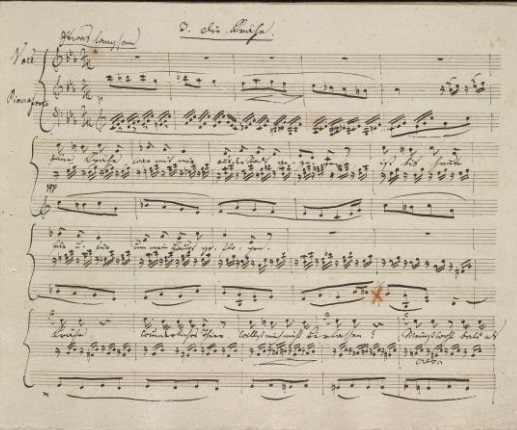 3. Die Krähe.
Etwas langsam
Pianoforte
Eine Krähe war mit mir aus der Stadt gezogen ist bis heute
für u. für um mein Haupt geflogen.
Krähe wunderliches Thier willst mich nicht verlassen? Meinst wohl bald als